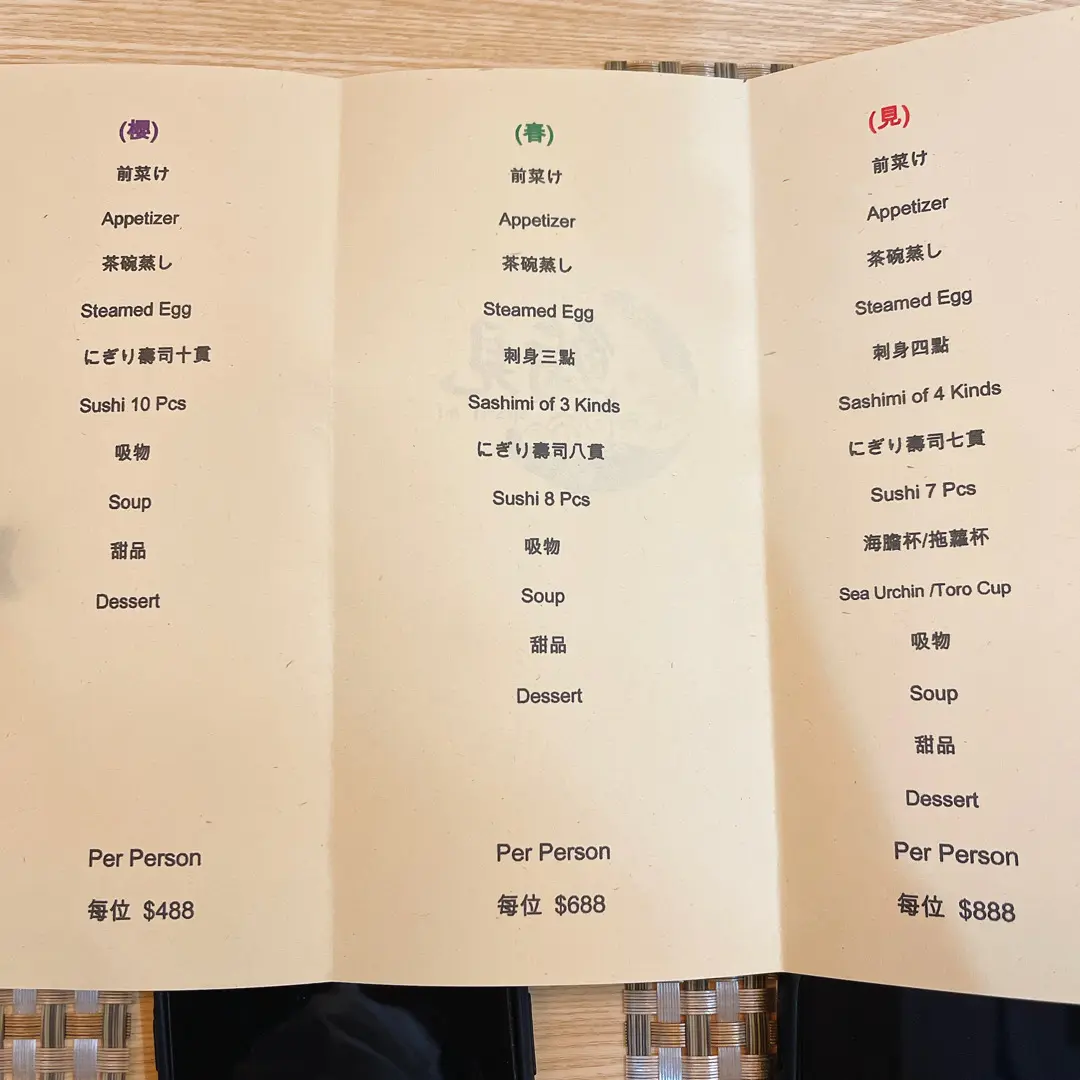 (櫻)
前菜け
Appetizer
茶碗蒸し
Steamed Egg
にぎり壽司十貫
Sushi 10 Pcs
吸物
Soup
甜品
Dessert
Per Person
每位 $488
(春)
前菜け
Appetizer
茶碗蒸し
Steamed Egg
刺身三點
Sashimi of 3 Kinds
にぎり壽司八貫
Sushi 8 Pcs
吸物
Soup
甜品
Dessert
Per Person
每位 $688
(見)
前菜け
Appetizer
茶碗蒸し
Steamed Egg
刺身四點
Sashimi of 4 Kinds
にぎり壽司七貫
Sushi 7 Pcs
海膽杯/拖蘿杯
Sea Urchin /Toro Cup
吸物
Soup
甜品
Dessert
Per Person
每位 $888